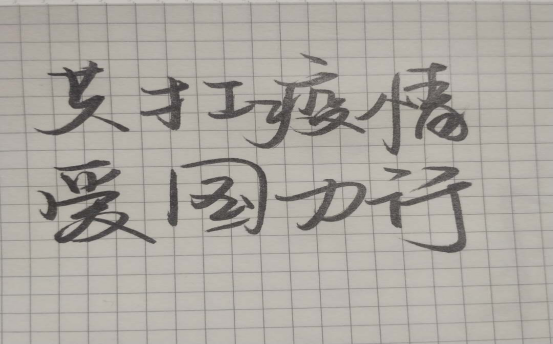 共扛疫情
爱国力行